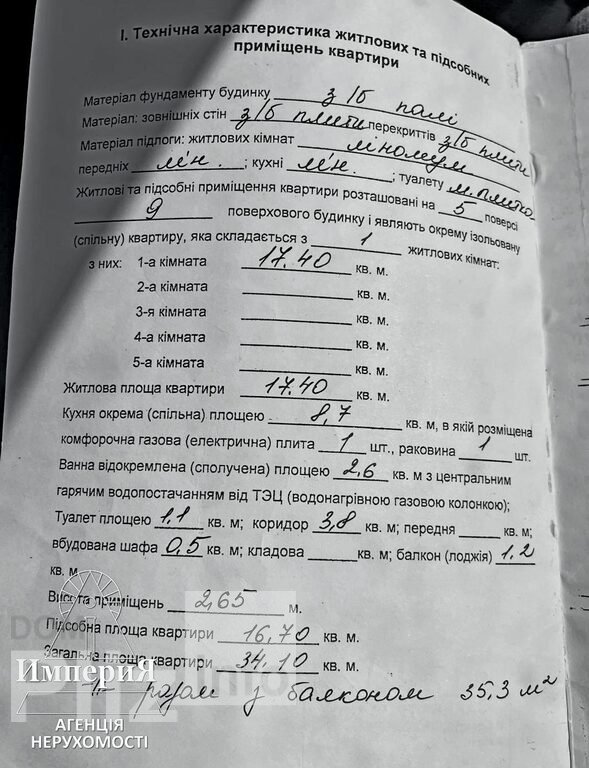 І. Технічна характеристика житлових та підсобних
приміщень квартири
Матеріал фундаменту будинку з/б палі
Матеріал: зовнішніх стін з/б плити перекриттів з/б плити
Матеріал підлоги: житлових кімнат лінолеум
передніх лін. ; кухні лін. ; туалету м.плитка
Житлові та підсобні приміщення квартири розташовані на 5 поверсі
9 поверхового будинку і являють окрему ізольовану
(спільну) квартиру, яка складається з 1 житлових кімнат:
з них: 1-а кімната 17.40 кв. м.
2-а кімната кв. м.
3-я кімната кв. м.
4-а кімната кв. м.
5-а кімната кв. м.
Житлова площа квартири 17.40 кв. м.
Кухня окрема (спільна) площею 8,7 кв. м, в якій розміщена
комфорочна газова (електрична) плита 1 шт., раковина 1 шт.
Ванна відокремлена (сполучена) площею 2,6 кв. м з центральним
гарячим водопостачанням від ТЭЦ (водонагрівною газовою колонкою);
Туалет площею 1,1 кв. м; коридор 3,8 кв. м; передня кв. м;
вбудована шафа 0,5 кв. м; кладова кв. м; балкон (лоджія) 1.2
кв. м
Висота приміщень 2,65 м.
Підсобна площа квартири 16,70 кв. м.
Загальна площа квартири 34,10 кв. м.
разом з балконом 35,3 м²
ИмпериЯ
АГЕНЦІЯ
НЕРУХОМОСТІ